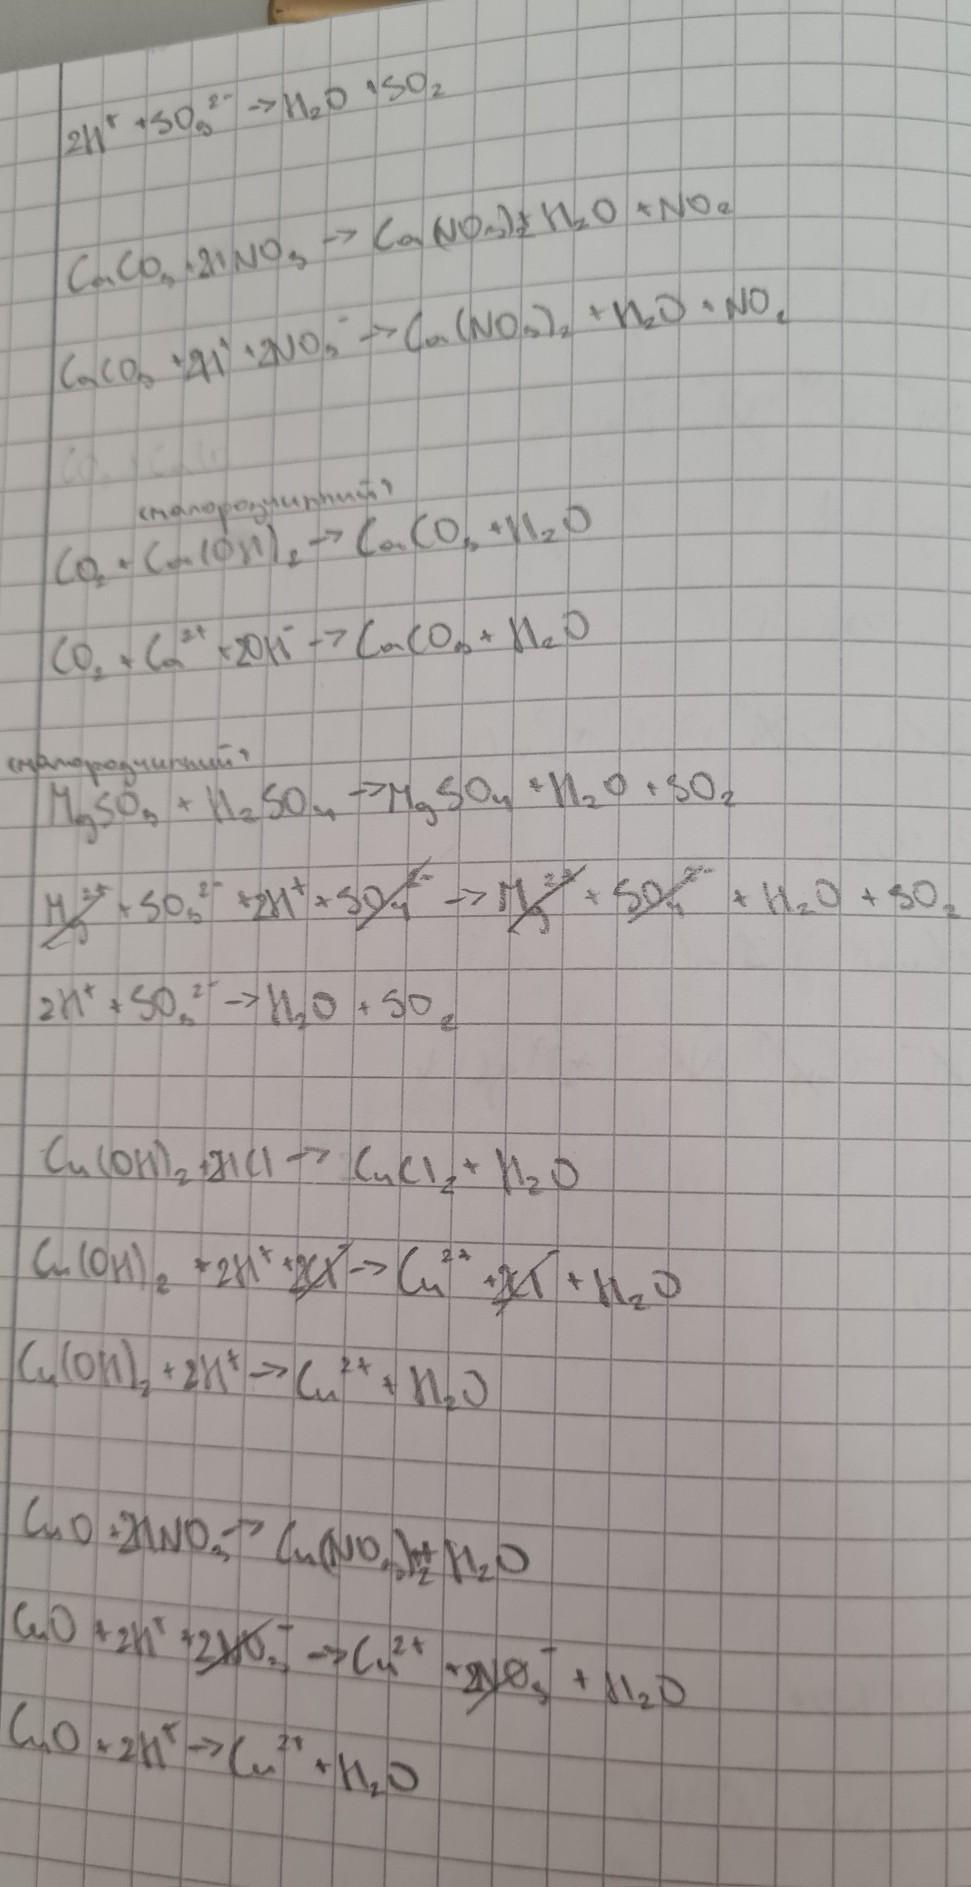 2H⁺ + SO₃²⁻ → H₂O + SO₂
CaCO₃ + 2HNO₃ → Ca(NO₃)₂ + H₂O + NO₂
CaCO₃ + 2H⁺ + 2NO₃⁻ → Ca(NO₃)₂ + H₂O + NO₂
CO₂ + Ca(OH)₂ → CaCO₃ + H₂O
CO₂ + Ca²⁺ + 2OH⁻ → CaCO₃ + H₂O
MgSO₃ + H₂SO₄ → MgSO₄ + H₂O + SO₂
Mg²⁺ + SO₃²⁻ + 2H⁺ + SO₄²⁻ → Mg²⁺ + SO₄²⁻ + H₂O + SO₂
2H⁺ + SO₃²⁻ → H₂O + SO₂
Cu(OH)₂ + 2HCl → CuCl₂ + H₂O
Cu(OH)₂ + 2H⁺ + 2Cl⁻ → Cu²⁺ + 2Cl⁻ + H₂O
Cu(OH)₂ + 2H⁺ → Cu²⁺ + H₂O
CuO + 2HNO₃ → Cu(NO₃)₂ + H₂O
CuO + 2H⁺ + 2NO₃⁻ → Cu²⁺ + 2NO₃⁻ + H₂O
CuO + 2H⁺ → Cu²⁺ + H₂O